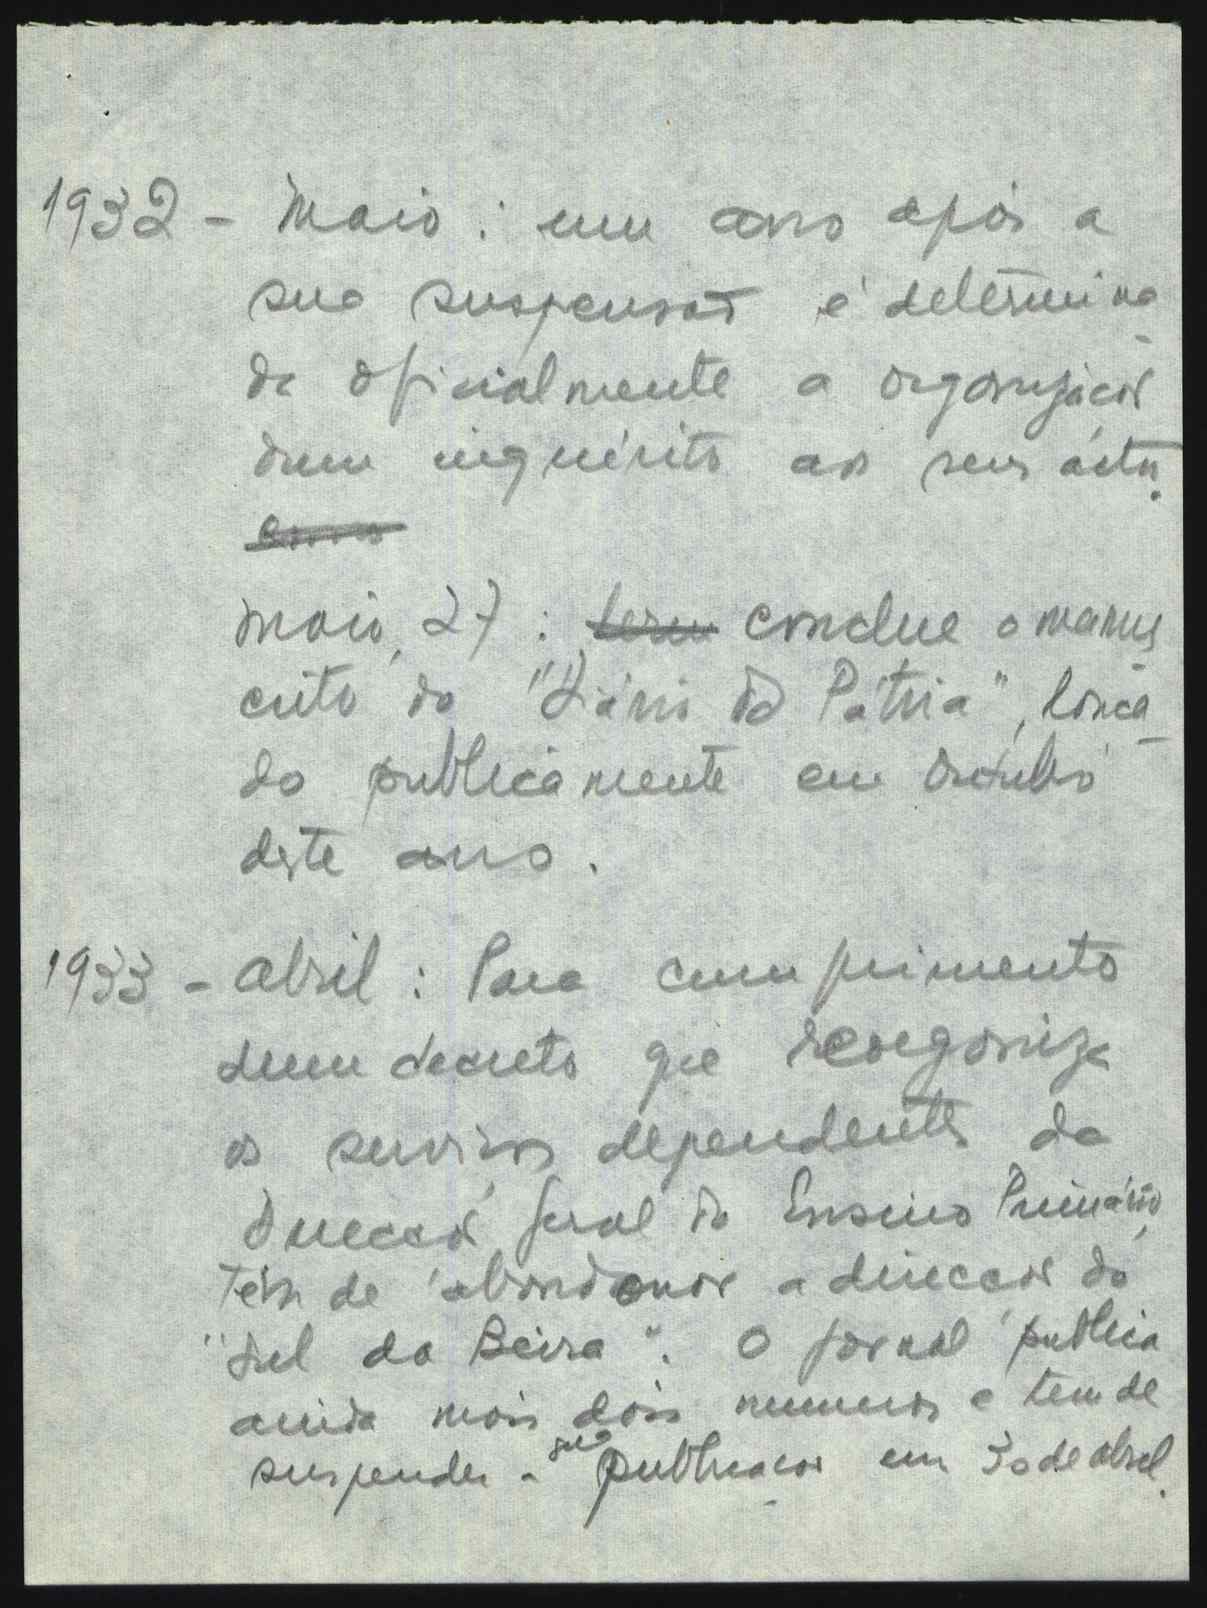 1932 - Maio : um ano após a
sua suspensão é determina
da oficialmente a organização
dum inquérito aos seus actos.
Maio, 27 : conclue o manus
crito do "Diário da Pátria", lança
do publicamente em Outubro
deste ano.
1933 - Abril : Para cumprimento
dum decreto que reorganiza
os serviços dependentes da
Direcção Geral do Ensino Primário,
tem de abandonar a direcção do
"Sul da Beira". O jornal publica
ainda mais dois numeros e tem de
suspender a sua publicação em 30 de Abril.